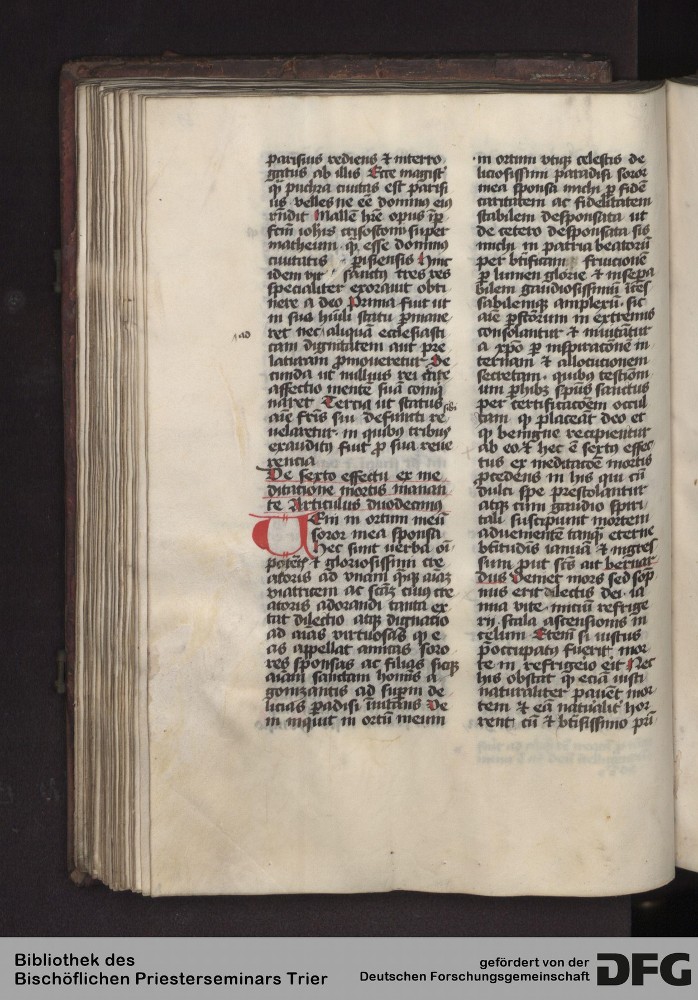 parisius rediens ⁊ interro
gatus ab illis Ecce magist̄
qͣ puchra ciuitas est parisi
us velles ne eē dominus eiꝰ
rn̄dit Mallem hr̄e opus ip̄
fc̄m ioh̄is crisostomi super
matheum qͣ esse dominus
ciuitatis p̄isiensis Hinc
idem vir sanctus tres res
specialiter exorauit obti
nere a deo Prima fuit ut
in sua hūili statu ꝑmane
ret nec aliquā ecclesiasti
ad
cam dignitatem aut pre
laturam ꝓmoueretur Se
cunda ut nullius rei
affectio mente suā
naret Tercia ut status
sibi
aīe fr̄is sui defuncti re
uelaretur in quibꝰ tribus
exauditꝰ fuit ꝓ sua reue
rencia
De sexto effectu ex me
ditatione mortis manan
te Articulus duodecimꝰ
Ueni in ortum meū
soror mea sponsa
Hec sunt uerba oī
potētis ⁊ gloriosissimi cre
atoris ad vnam quāqꝫ aīaꝫ
viatricem ac scāꝫ cuiꝰ cre
atoris adorandi tanta ex
tat dilectio atqꝫ dignatio
ad aīas virtuosas qͣ e
as appellat amicas soro
res sponsas ac filias sicqꝫ
aīam sanctam homīs a
gonizantis ad sup̄ni de
licias ꝑadisi īuitans Ve
ni inquit in ortū meum
in ortum vtiqꝫ celestis de
liciosissimi paradisi soror
mea sponsa michi ꝑ fidē
caritatem ac fidelitatem
stabilem desponsata ut
de cetero desponsata sis
michi in patria beatorū
per btīficam fruicionē
ꝑ lumen glorie ⁊ insepa
bilem gaudiosissimū
sabilemqꝫ amplexū sic
aīe ꝑfectorum in extremis
consolantur ⁊ inuitātur
a xp̄o ꝑ inspiratōnē in
ternam ⁊ allocutionem
secretam quibꝰ testiōni
um ꝑhibꝫ spūs sanctus
per certificacōem occul
tam qͣ placeāt deo et
qͣ benigne recipientur
ab eo ⁊ hec ē sextꝰ effec
tus ex meditacōe mortis
ꝓcedens in his qui cū
dulci spe prestolantur
atqꝫ cum gaudio spiri
tali suscipiunt mortem
aduenientē tanqͣ eterne
btītudīs ianuā ⁊ ingres
sum put scūs ait bernar
dus Ueniet mors sed sop̄
nus erit dilectis dei ia
nua vite iniciū refrige
rii scala ascensionis in
celum Etenī si iustus
p̄occupatꝰ fuerit mor
te in refrigerio erit Nec
his obstat qͣ eciā iusti
naturaliter pauēt mor
tem ⁊ eā naturalit̄ hor
rent cū ⁊ btīssimo pri
Bibliothek des
Bischöflichen Priesterseminars Trier
gefördert von der
Deutschen Forschungsgemeinschaft
DFG